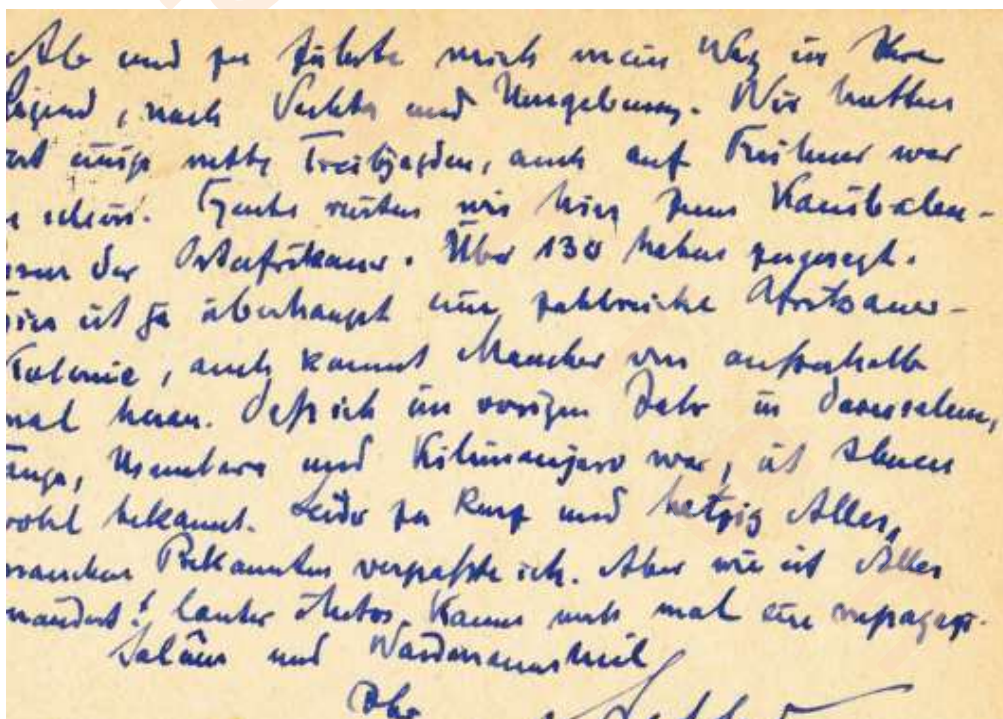 Ab und zu führte mich mein Weg in Ihre
Gegend, nach Vechta und Umgebung. Wir hatten
dort einige nette Treibjagden, auch auf war
schön. Heute rüsten wir hier zum Kanibalen-
essen der Ostafrikaner. Über 130 haben zugesagt.
Hier ist ja überhaupt eine zahlreiche Afrikaner-
Kolonie, auch kommt Mancher von außerhalb
mal heran. Daß ich im vorigen Jahr in Daressalam,
Tanga, Usambara und Kilimanjaro war, ist Ihnen
wohl bekannt. Leider zu kurz und hetzig Alles,
manchen Bekannten verpaßte ich. Aber wie ist Alles
verändert! lauter Autos. Kaum noch mal ein
Salâms und Waidmannsheil
Ihr